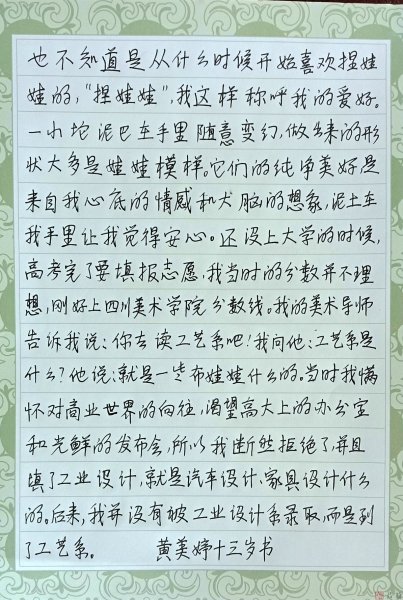 也不知道是从什么时候开始喜欢捏娃
娃的，“捏娃娃”，我这样称呼我的爱好。
一小坨泥巴在手里随意变幻，做出来的形
状大多是娃娃模样。它们的纯净美好是
来自我心底的情感和大脑的想象，泥土在
我手里让我觉得安心。还没上大学的时候，
高考完了要填报志愿，我当时的分数并不理
想，刚好上四川美术学院分数线。我的美术导师
告诉我说：你去读工艺系吧！我问他：工艺系是
什么？他说：就是一些布娃娃什么的。当时我满
怀对商业世界的向往，渴望高大上的办公室
和光鲜的发布会，所以我断然拒绝了，并且
填了工业设计，就是汽车设计、家具设计什么
的。后来，我并没有被工业设计系录取，而是到
了工艺系。 黄美婷十三岁书